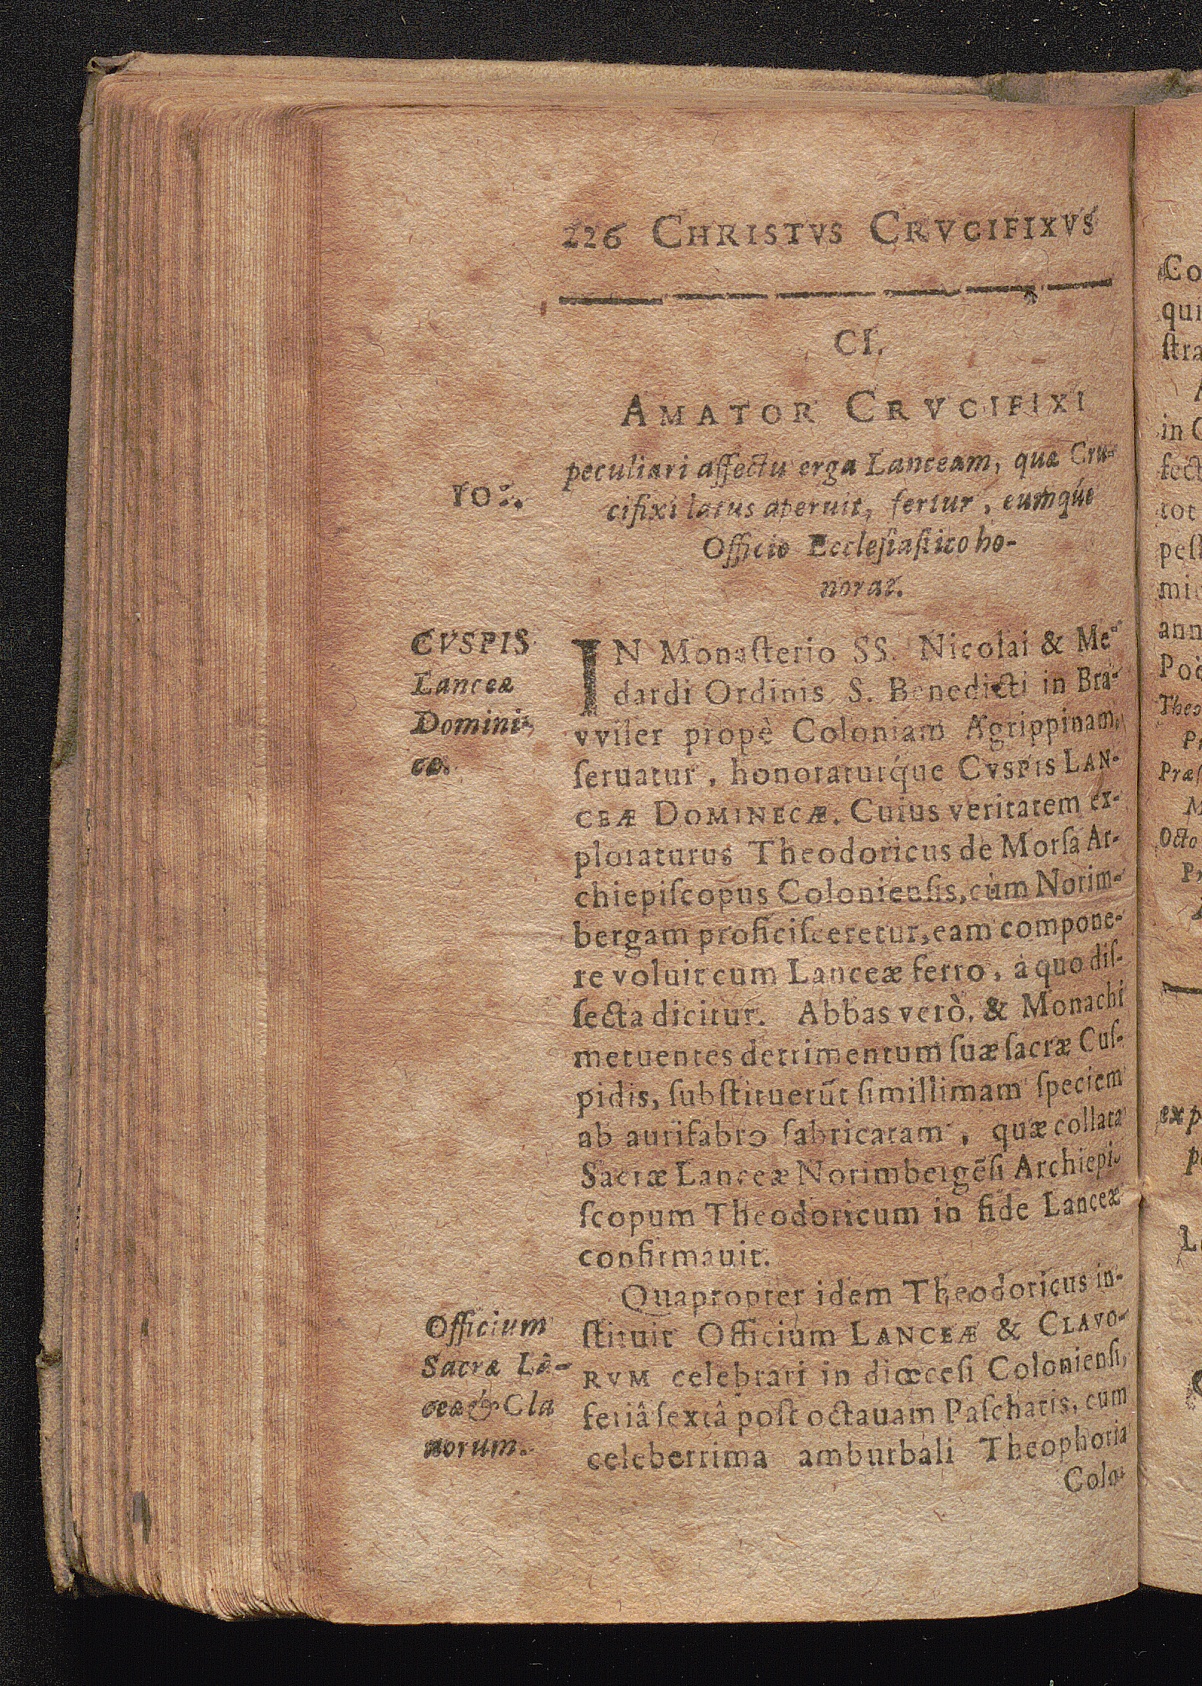 226 CHRISTVS CRVCIFIXVS
CI.
AMATOR CRVCIFIXI
peculiari affectu erga Lanceam, quæ Cru-
cifixi latus aperuit, fertur, eumq́ue
Officio Ecclesiastico ho-
norat.
CVSPIS
Lanceæ
Domini-
cæ.
IN Monasterio SS. Nicolai & Me-
dardi Ordinis S. Benedicti in Bra-
vviler propè Coloniam Agrippinam,
seruatur, honoraturq́ue CVSPIS LAN-
CEÆ DOMINECÆ. Cuius veritatem ex-
ploraturus Theodoricus de Morsa Ar-
chiepiscopus Coloniensis, cùm Norim-
bergam proficisceretur, eam compone-
re voluit cum Lanceæ ferro, à quo dis-
secta dicitur. Abbas verò, & Monachi
metuentes detrimentum suæ sacræ Cus-
pidis, substituerũt simillimam speciem
ab aurifabro fabricatam, quæ collata
Sacræ Lanceæ Norimbergẽsi Archiepi-
scopum Theodoricum in fide Lanceæ
confirmauit.
Quapropter idem Theodoricus in-
stituit Officium LANCEÆ & CLAVO-
RVM celebrari in diœcesi Coloniensi,
feriâ sextâ post octauam Paschatis, cum
celeberrima amburbali Theophoria
Officium
Sacræ Lã-
ceæ & Cla
uorum.
Colo-
Co
qui
stra
in C
fect
tot
pest
mi
ann
Theo
Præs
Octo
exp